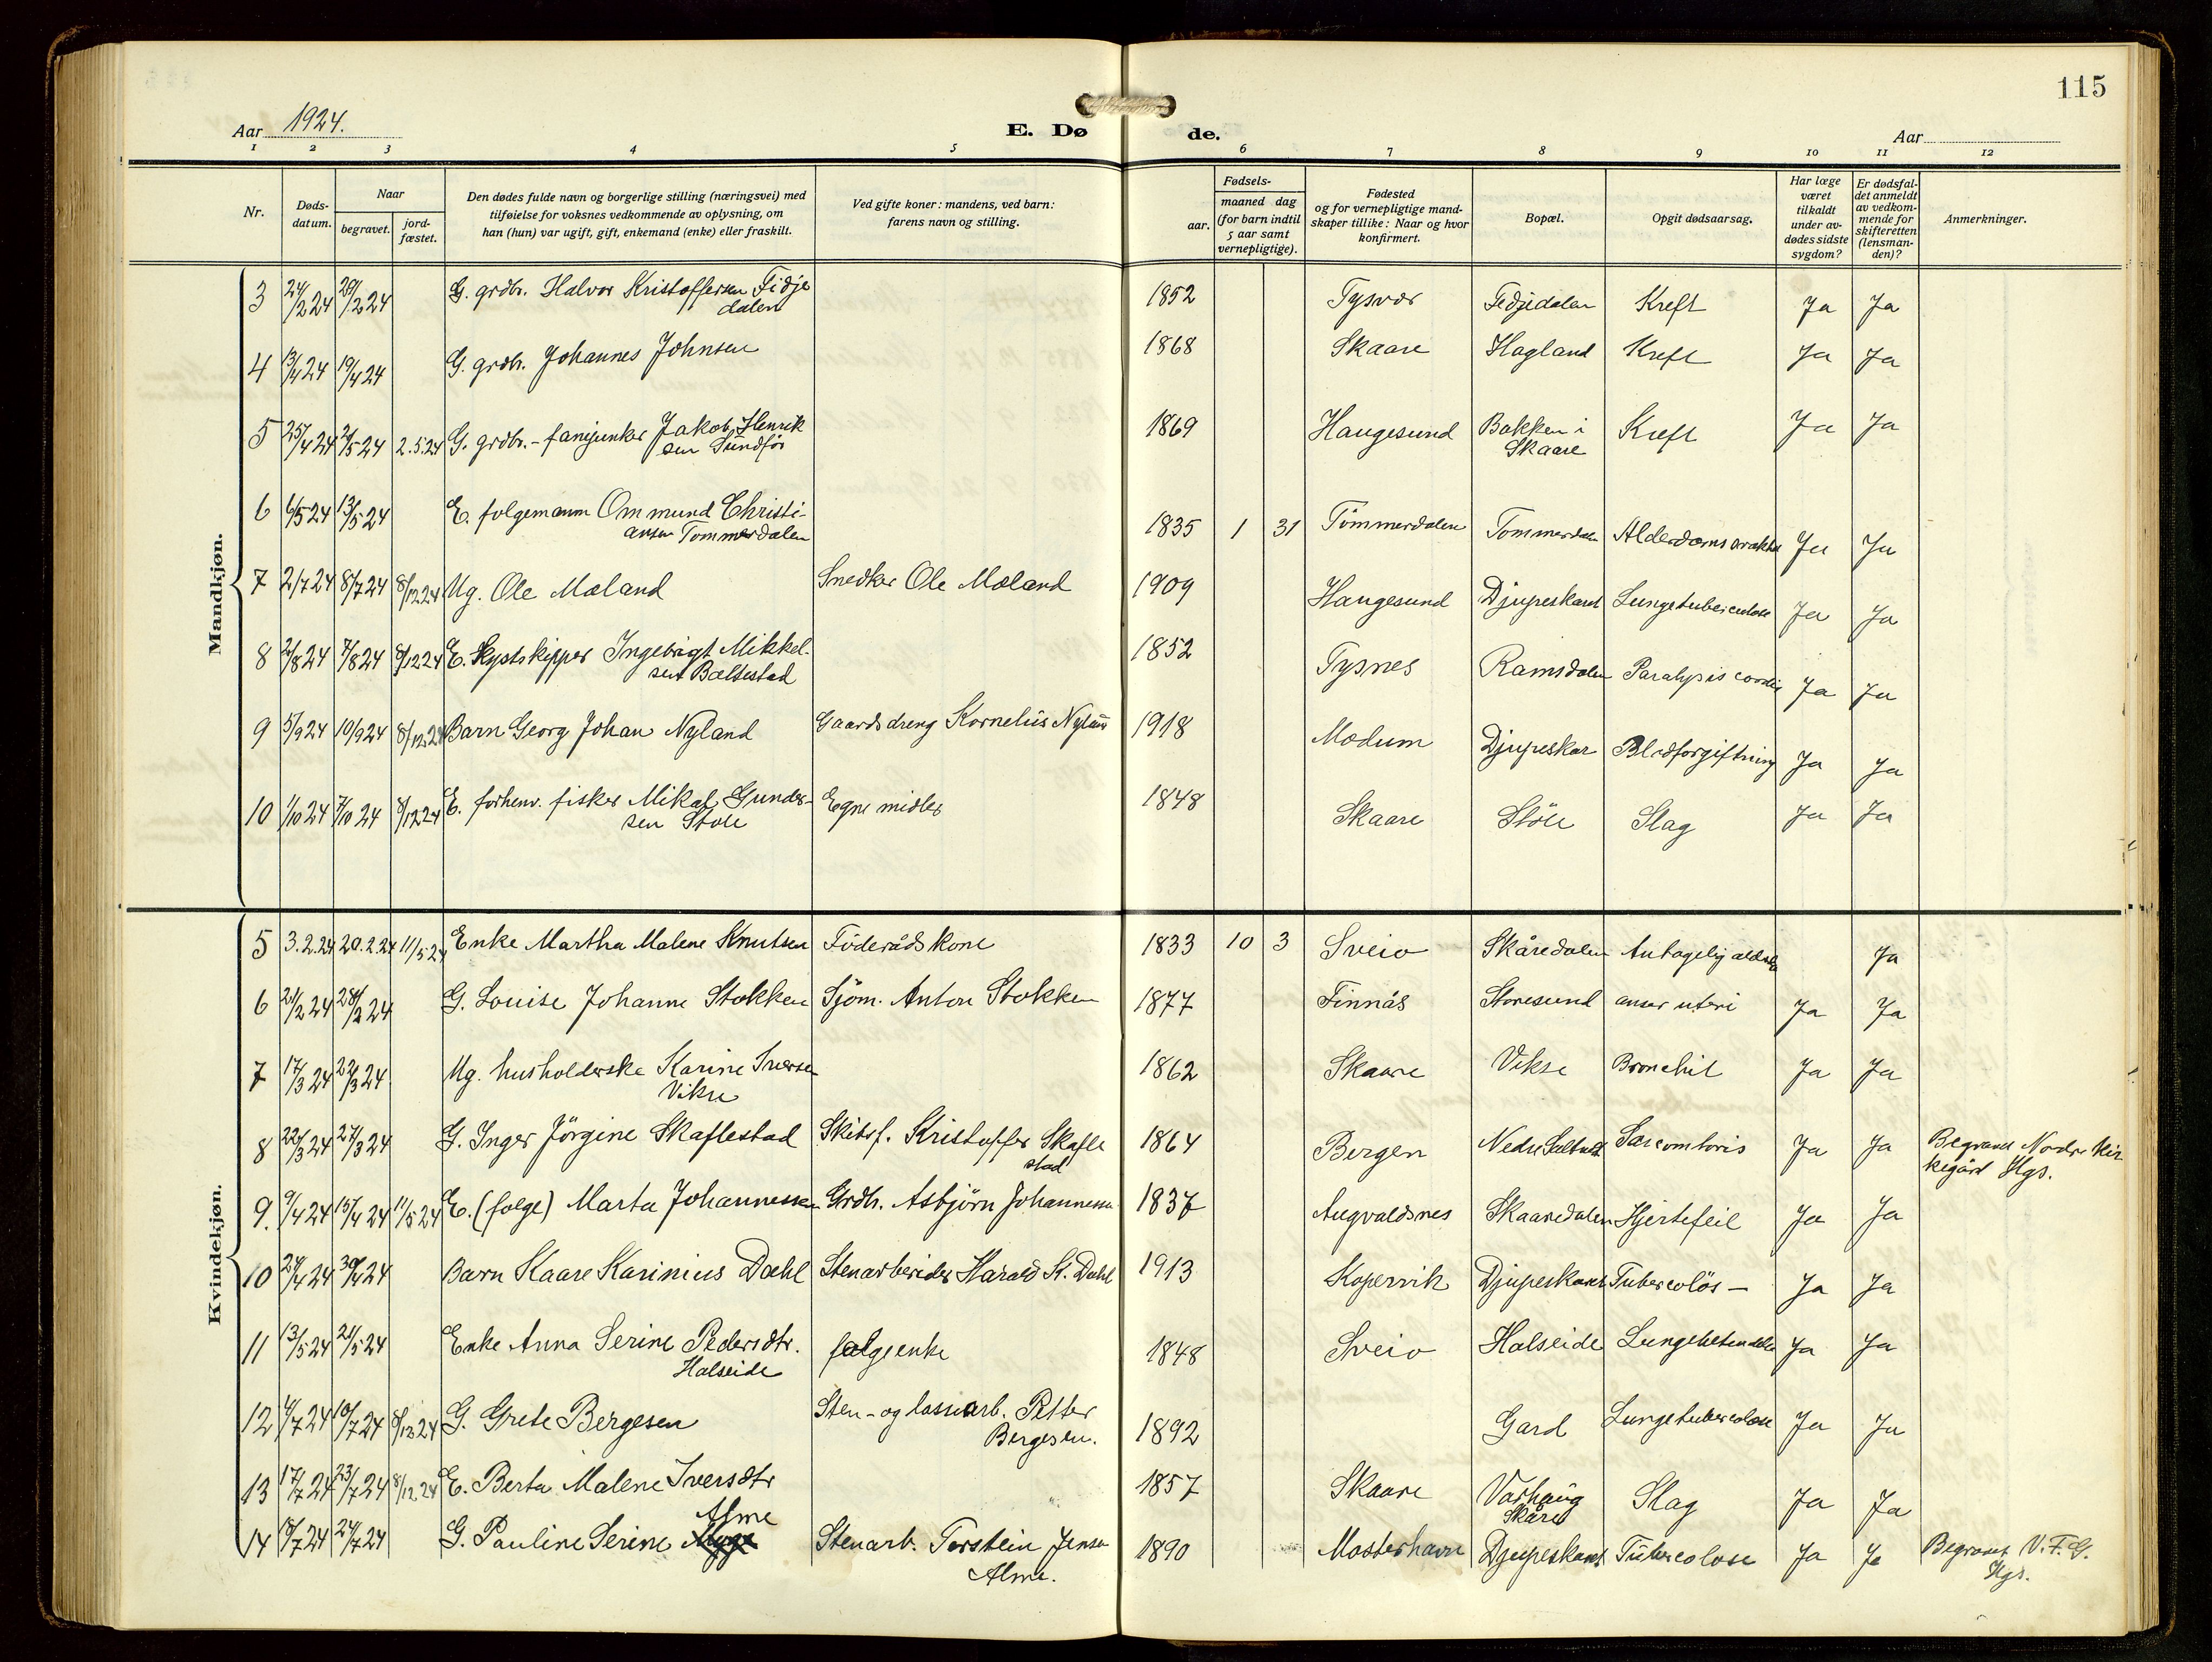 115
Aar 1924.
E. Dø de.
Aar
1 2 3 4 5 6 7 8 9 10 11 12
Nr.
Døds-datum.
Naar
begravet.
jord-fæstet.
Den dødes fulde navn og borgerlige stilling (næringsvei) med
tilføielse for voksnes vedkommende av oplysning, om
han (hun) var ugift, gift, enkemand (enke) eller fraskilt.
Ved gifte koner: mandens, ved barn:
farens navn og stilling.
Fødsels-
aar.
maaned dag
(for barn indtil
5 aar samt
vernepligtige).
Fødested
og for vernepligtige mand-
skaper tillike: Naar og hvor
konfirmert.
Bopæl.
Opgit dødsaarsag.
Har læge
været
tilkaldt
under av-
dødes sidste
sygdom?
Er dødsfal-
det anmeldt
av vedkom-
mende for
skifteretten
(lensman-
den)?
Anmerkninger.
Mandkjøn.
3 24/2 24 29/2 24 G. grdbr. Halvor Kristoffersen Tidje 1852 Tysvær Tedjedalen Kreft Ja Ja
dalen
4 13/4 24 19/4 24 G. grdbr. Johannes Johnsen 1868 Skaare Hagland Kreft Ja Ja
5 25/4 24 2/5 24 2.5.24 G. grdbr.-fanejunker Jakob Henrik 1869 Haugesund Bakken i Kreft Ja Ja
sen Sundför Skaare
6 6/5 24 13/5 24 E. folgemann Ommund Christi- 1835 1 31 Tömmerdalen Tommerdalen Ja Ja
ansen Tommerdalen
7 2/7 24 8/7 24 8/12 24 Ug. Ole Mæland Snedker Ole Mæland 1909 Haugesund Djupeskard Lungetuberculose Ja Ja
8 2/8 24 7/8 24 8/12 24 E. Kystskipper Ingebrigt Mikkel- 1852 Tysnes Ramsdalen Paralysis cordis Ja Ja
sen Baltestad
9 5/9 24 10/9 24 8/12 24 Barn Georg Johan Nyland Gaardsdreng Kornelius Nyland 1918 Modum Djupeskar Blodforgiftning Ja Ja
10 1/10 24 7/10 24 8/12 24 E. forhenv. fisker Mikal Gunder- Egne midler 1848 Skaare Stöle Slag Ja Ja
sen Stole
Kvindekjøn.
5 3.2.24 20.2.24 11/5 24 Enke Martha Malene Knutsen Föderådskone 1833 10 3 Sveio Skåredalen Antagelig Ja
6 21/2 24 28/2 24 G. Louise Johanne Stokken Sjöm. Anton Stokken 1877 Finnås Storesund uteri Ja Ja
7 17/3 24 22/3 24 Ug. husholderske Karine Iversen 1862 Skaare Vikse Bronchit Ja Ja
Vikse
8 22/3 24 27/3 24 G. Inger Jörgine Skaflestad Kristoffer Skafle 1864 Bergen Nedre Ja Ja Begravet Nordre kir
stad kegård Hgs.
9. 9/4 24 15/4 24 11/5 24 E. (folge) Marta Johannessen Grdbr. Asbjörn Johannessen 1837 Augvaldsnes Skaaredalen Hjertefeil Ja Ja
10 24/4 24 30/4 24 Barn Kaare Karinius Dahl Stenarbeider Harald K. Dahl 1913 Kopervik Djupeskard Tuberculös - Ja Ja
11 13/5 24 21/5 24 Enke Anna Serine Pedersdtr. folgeenke 1848 Sveio Halseide Lungebetendelse Ja Ja
Halseide
12 4/7 24 10/7 24 8/12 24 G. Grete Bergesen Sten-og lossearb. Petter 1892 Gard Lungetuberculose Ja Ja
Bergesen.
13 17/7 24 23/7 24 8/12 24 E. Berta Malene Iversdtr 1857 Skaare Varhaug Slag Ja Ja
Skåre
Alme
14 18/7 24 24/7 24 G. Pauline Serine Stenarb. Torstein Jensen 1890 Mosterhavn Djupeskard Tuberculose Ja Ja Begravet V.F.G.
Alme. Hgs.